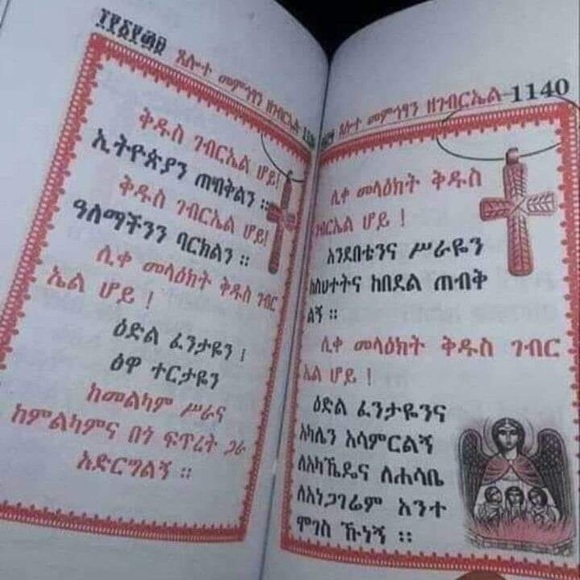 ጸሎተ መምኅፃን ዘገብርኤል
ቅዱስ ገብርኤል ሆይ!
ኢትዮጵያን ጠብቅልን ።
ቅዱስ ገብርኤል ሆይ!
ዓለማችንን ባርክልን ።
ሊቀ መላዕክት ቅዱስ ገብር
ኤል ሆይ !
ዕድል ፈንታዬን ፤
ፅዋ ተርታዬን
ከመልካም ሥራና
ከምልካምና በጎ ፍጥረት ጋራ
አድርግልኝ ።
ጸሎተ መምኅፃን ዘገብርኤል 1140
ሊቀ መላዕክት ቅዱስ
ገብርኤል ሆይ !
አንደበቴንና ሥራዬን
ከስህተትና ከበደል ጠብቅ
ልኝ ።
ሊቀ መላዕክት ቅዱስ ገብር
ኤል ሆይ !
ዕድል ፈንታዬንና
አካሌን አሳምርልኝ
ለአካሄዴና ለሐሳቤ
ለአነጋገሬም አንተ
ሞገስ ኹነኝ ።